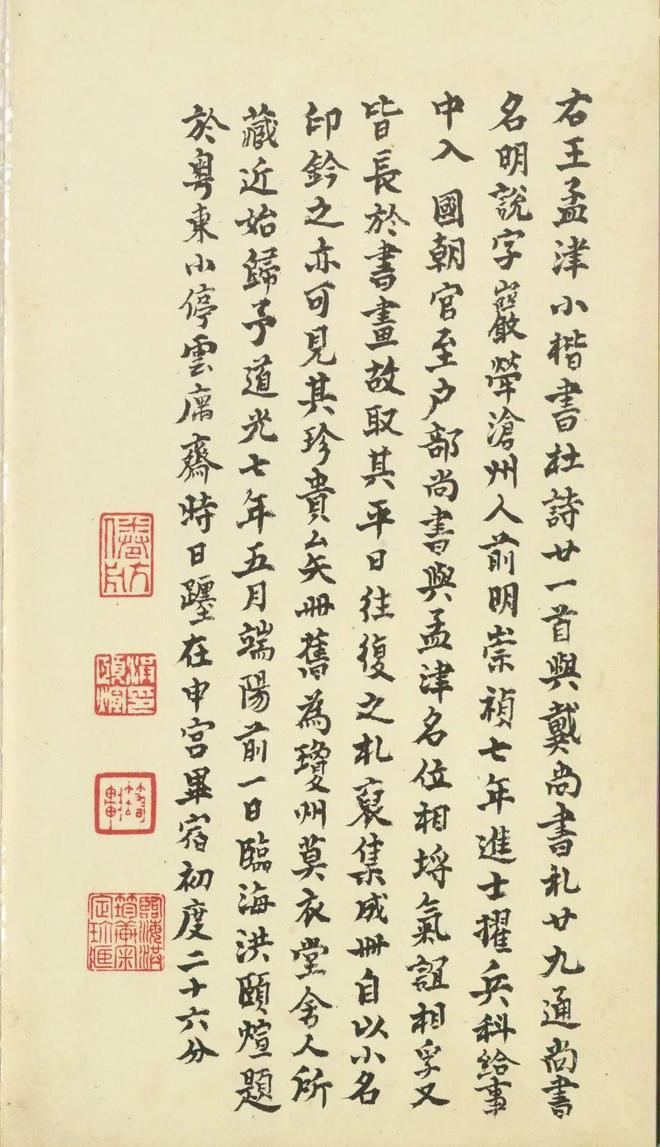 右王孟津小楷書杜詩廿一首與戴尚書札廿九通尚書
名明說字巖犖滄州人前明崇禎七年進士擢兵科給事
中入 國朝官至户部尚書與孟津名位相埒氣誼相孚又
皆長於書畫故取其平日往復之札裒集成冊自以小名
印鈐之亦可見其珍貴矣冊舊為瓊州莫衣堂舍人所
藏近始歸予道光七年五月端陽前一日臨海洪頤煊題
於粵東小停雲庽齋時日躔在申宮畢宿初度二十六分
洪印頤煊
筠軒
臨海洪筠軒宋定珍